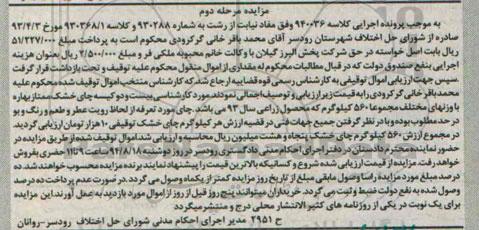 مزایده مرحله دوم
به موجب پرونده اجرایی کلاسه ۹۴۰۰۳۶ وفق مفاد نیابت از رشت به شماره ۹۳۰۲۸۸ و کلاسه ۹۳۰۳۶۸/۱ مورخ ۹۳/۴/۳
صادره از شورای حل اختلاف شهرستان رودسر آقای محمد باقر خانی گرکرودی محکوم است به پرداخت مبلغ ۵۱/۲۲۷/۰۰۰
ریال بابت اصل خواسته در حق شرکت پخش البرز گیلان با وکالت خانم محبوبه ملکی فر و مبلغ ۲/۵۰۰/۰۰۰ ریال بعنوان هزینه
اجرایی بنفع صندوق دولت که در قبال مطالبات محکوم له مقداری از اموال منقول محکوم علیه توقیف و تحت بازداشت قرار گرفت
.سپس جهت ارزیابی اموال توقیفی به کارشناس رسمی قوه قضاییه ارجاع شد که کارشناس منتخب اموال توقیف شده محکوم علیه
محمد باقر خانی گرکرودی را به قیمت زیر ارزیابی و توصیف اجمالی نمودند. مورد کارشناسی بیست و دو کیسه چای خشک ممتاز بهاره
با وزنهای مختلف مجموعا ۵۶۰ کیلوگرم که محصول زراعی سال ۹۳ می باشد. چای مورد تعرفه از لحاظ رویت عطر و طعم و رنگ و بو
در حد مطلوب بوده و با در نظر گرفتن جمیع جهات فنی در قضیه ارزش هر کیلوگرم چای خشک توقیفی ۱۰ هزار تومان ارزیابی گردید.
در مجموع ارزش ۵۶۰ کیلوگرم چای خشک پنجاه و هشت میلیون ریال محاسبه و ارزیابی شد اموال توقیف شده از طریق مزایده در
حضور نماینده محترم دادستان در دفتر اجرای احکام مدنی دادگستری رودسر در روز دوشنبه ۹۴/۸/۱۸ ساعت ۹ تا ۱۱ حضوری بفروش
خواهد رفت. مزایده از قیمت ارزیابی شده شروع و کسانیکه بالاترین قیمت را پیشنهاد نمایند برنده مزایده محسوب خواهند شد. ده
درصد مبلغ مورد مزایده را سا وصول مابقی مبلغ از تاریخ روز مزایده کمتر از یکماه وصول می گردد. در صورت عدم پرداخت ده درصد
وصول شده به نفع دولت ضبط و ثبت می گردد. خریداران میتوانند پنج روز قبل از روز از اموال مورد بازدید به عمل آورند. این مزایده
برای یک نوبت در یکی از روزنامه های کثیر الانتشار محلی درج و منتشر میگردد
ح ۲۹۵۱ مدیر اجرای احکام مدنی شورای حل اختلاف رودسر-روانان